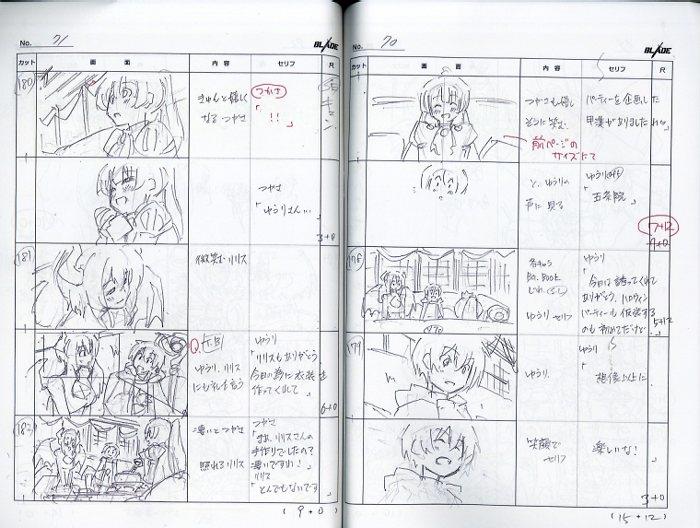 No. 71
BLADE
カット
画面
内容
セリフ
尺
180
きゅんと嬉しく
なるつかさ
つかさ
「!!」
つかさ
「ゆうりさん…」
3+0
181
微笑むリリス
Q.
ゆうり、リリス
にもれを言う
ゆうり
「リリスもありがとう
今日の為に衣装を
作ってくれて」
6+0
182
凄いとつかさ
照れるリリス
つかさ
「まあ、リリスさんの
手作りでしたの?
凄いですわ!」
リリス
「とんでもないです」
(9+0)
No. 70
BLADE
カット
画面
内容
セリフ
尺
つかさも嬉し
そうに笑む
パーティーを企画した
甲斐がありましたわね
前ページの
サイズにて
と、ゆうりの
声に見る
「五条院」
7+12
178
BOOK
ゆうり セリフ
ゆうり
「今日は誘ってくれて
ありがとう、ハロウィン
パーティーも仮装する
のも初めてだけど
5+12
179
ゆうり
ゆうり
想像以上に
笑顔で
セリフ
楽しいな!」
3+0
(15+12)